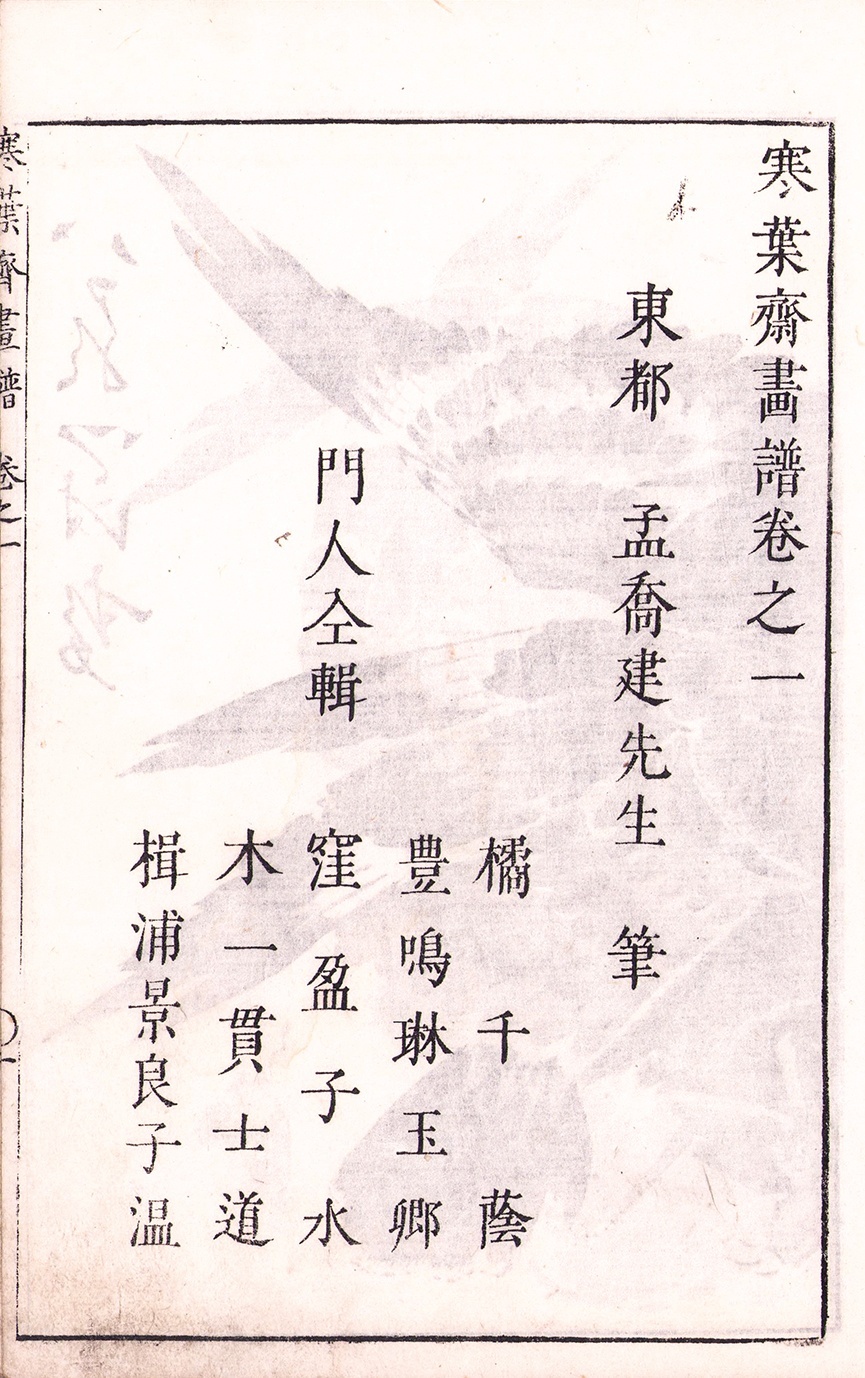 寒葉齋畫譜卷之一
東都 孟喬建先生 筆
橘千蔭
豊鳴琳玉卿
門人仝輯 窪盈子水
木一貫士道
楫浦景良子温
寒葉齋畫譜 卷之一 〇一